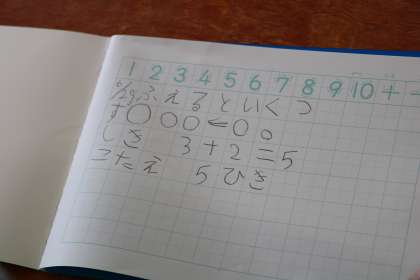 1 2 3 4 5 6 7 8 9 10 + -
ふえるといくつ
ず○○○←○○
しき 3+2=5
こたえ 5ひき